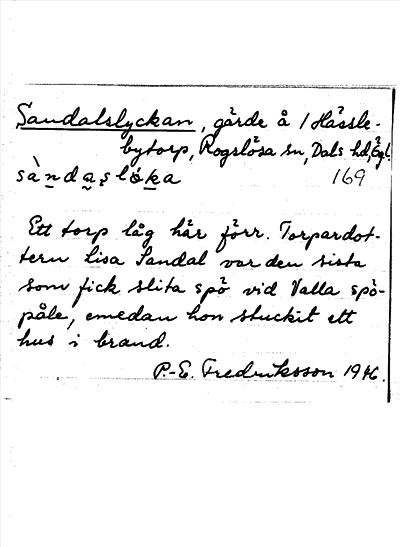 Sandalslyckan, gärde å 1 Hässle-
bytorp, Rogslösa sn, Dals hd, Ögl.
sàndaslöka 169
Ett torp låg här förr. Torpardot-
tern Lisa Sandal var den sista
som fick slita spö vid Valla spö-
påle, emedan hon stuckit ett
hus i brand.
P.-E. Fredriksson 1946.